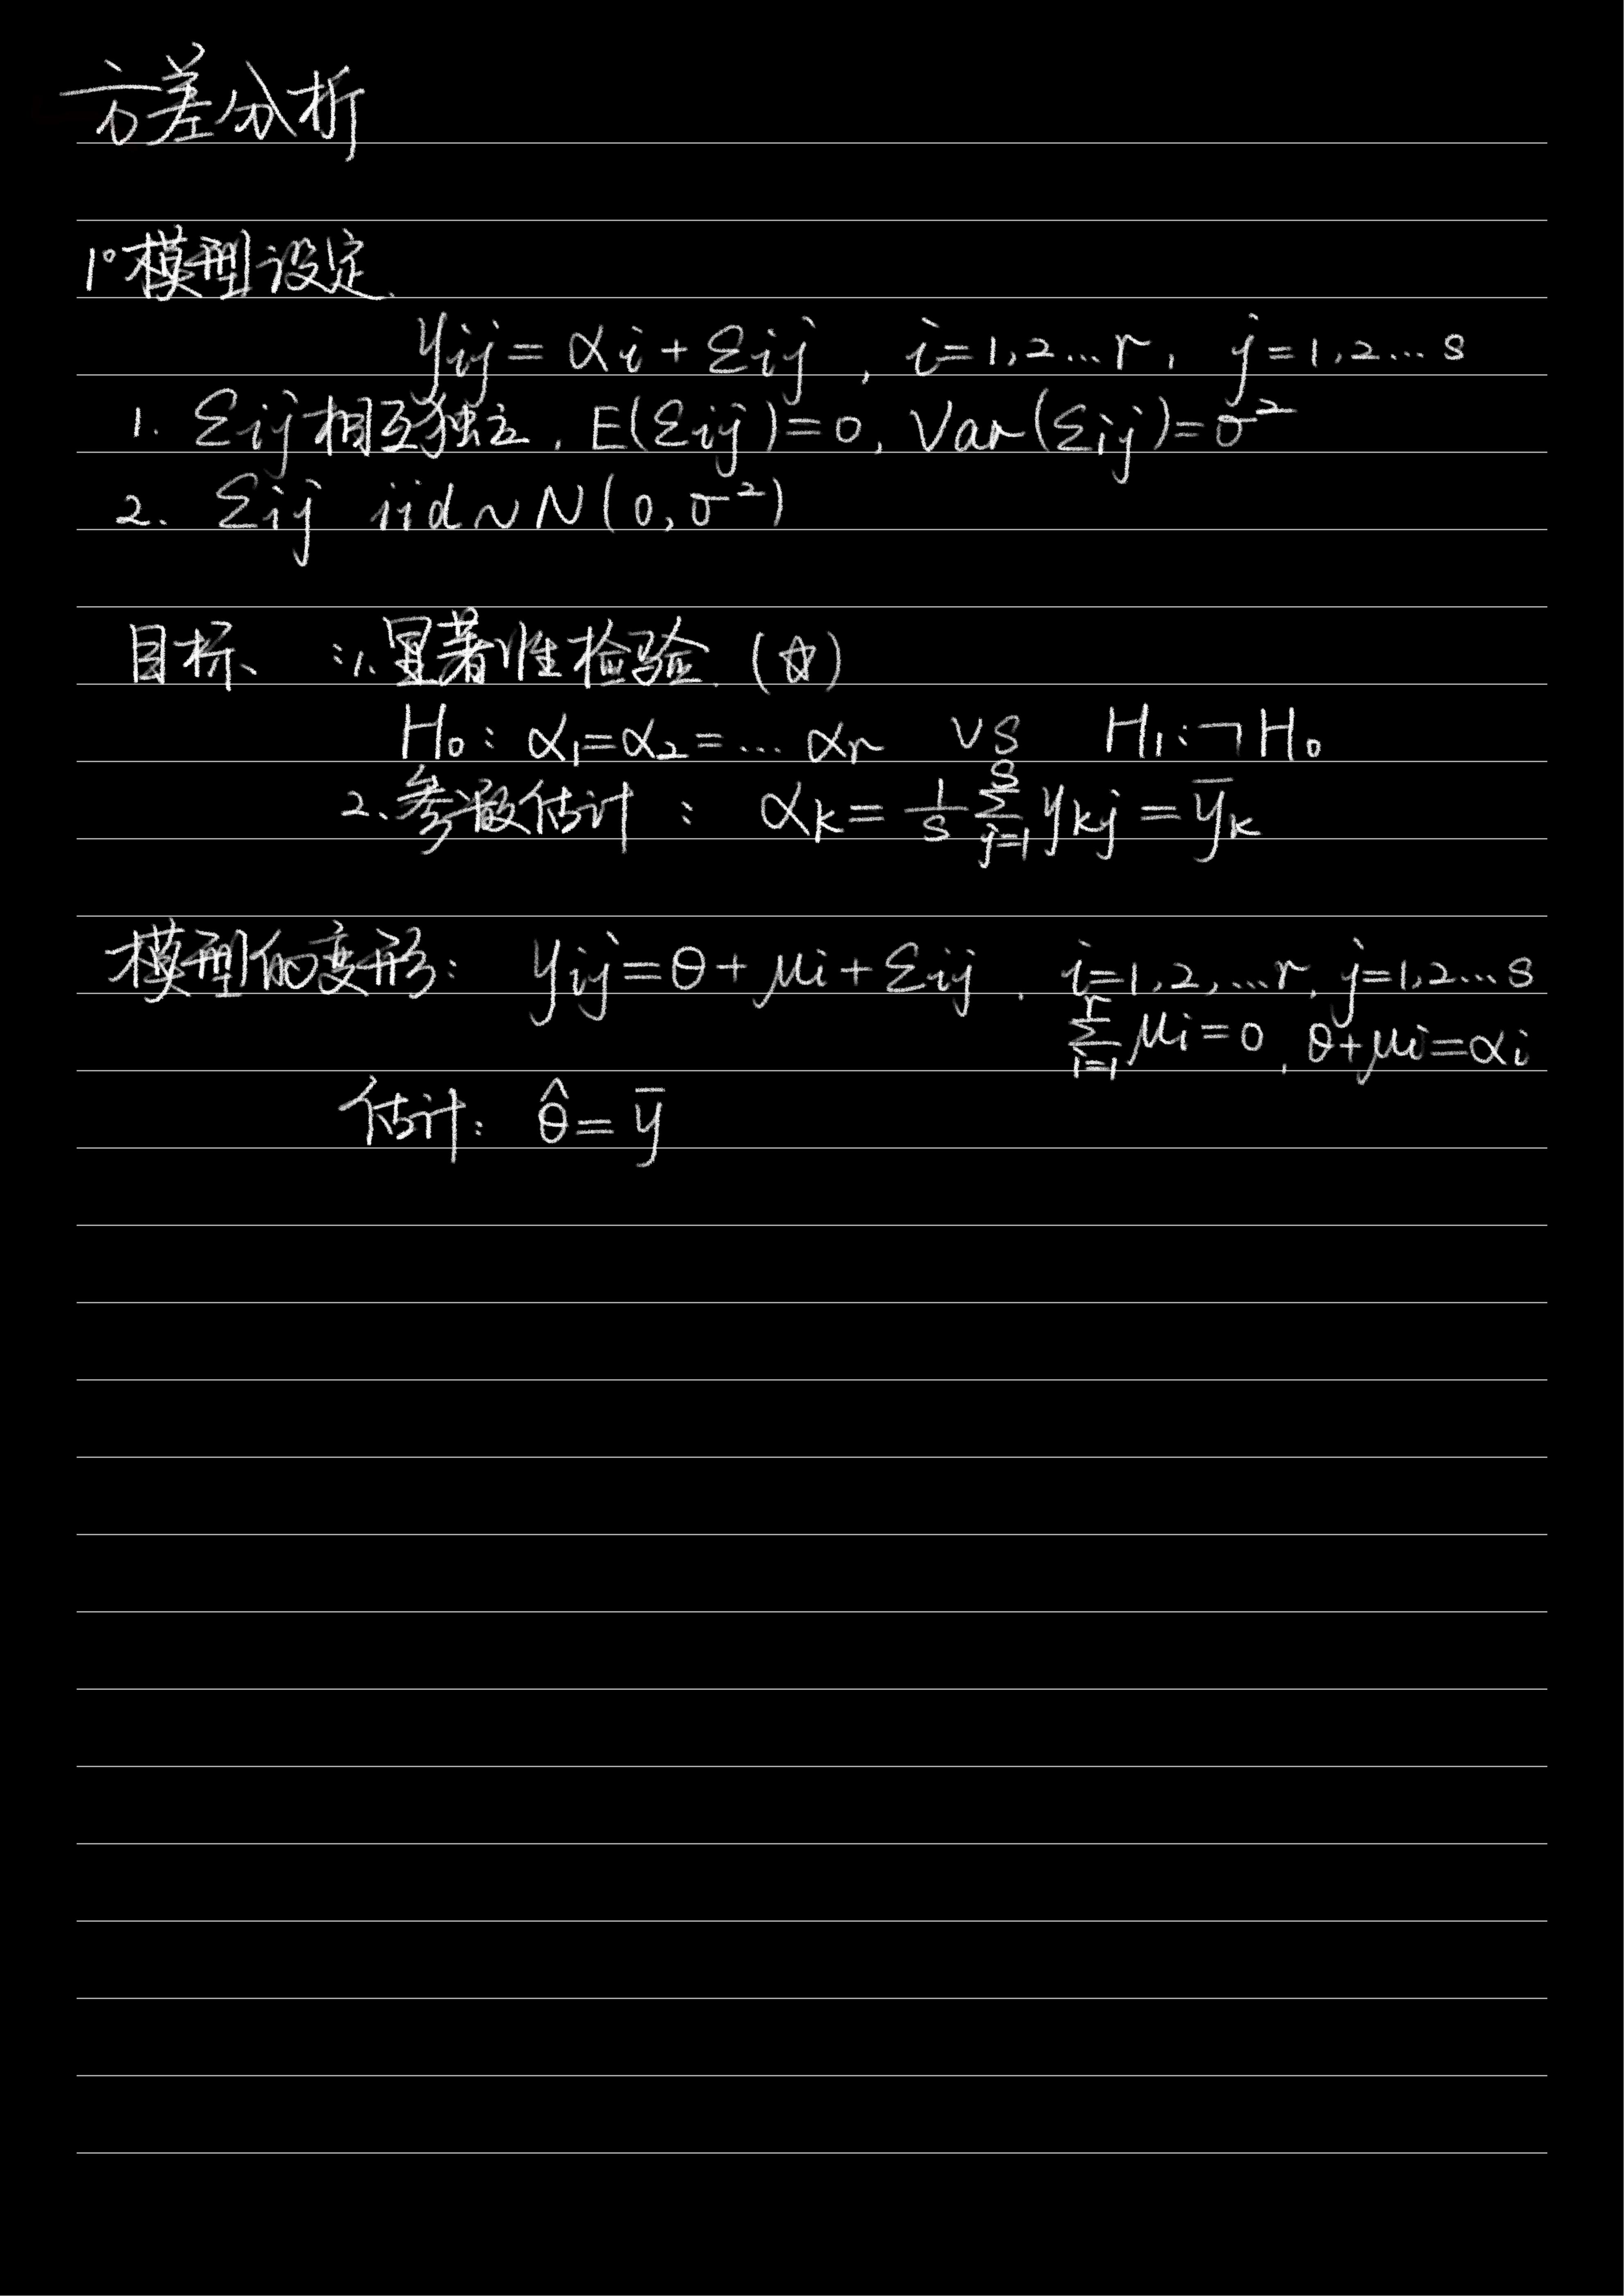 方差分析
1°模型设定.
yij = αi + εij , i=1,2...r, j=1,2...s
1. εij相互独立, E(εij)=0, Var(εij)=σ²
2. εij iid ~ N(0,σ²)
目标 : 1. 显著性检验. (☆)
H₀: α₁=α₂=... αr vs H₁: ¬H₀
2. 参数估计 : αk = 1/s ∑_{j=1}^{s} ykj = ȳk
模型的变形: yij = θ + μi + εij , i=1,2,...r, j=1,2...s
∑_{i=1}^{r} μi = 0, θ+μi=αi
估计: θ̂ = ȳ